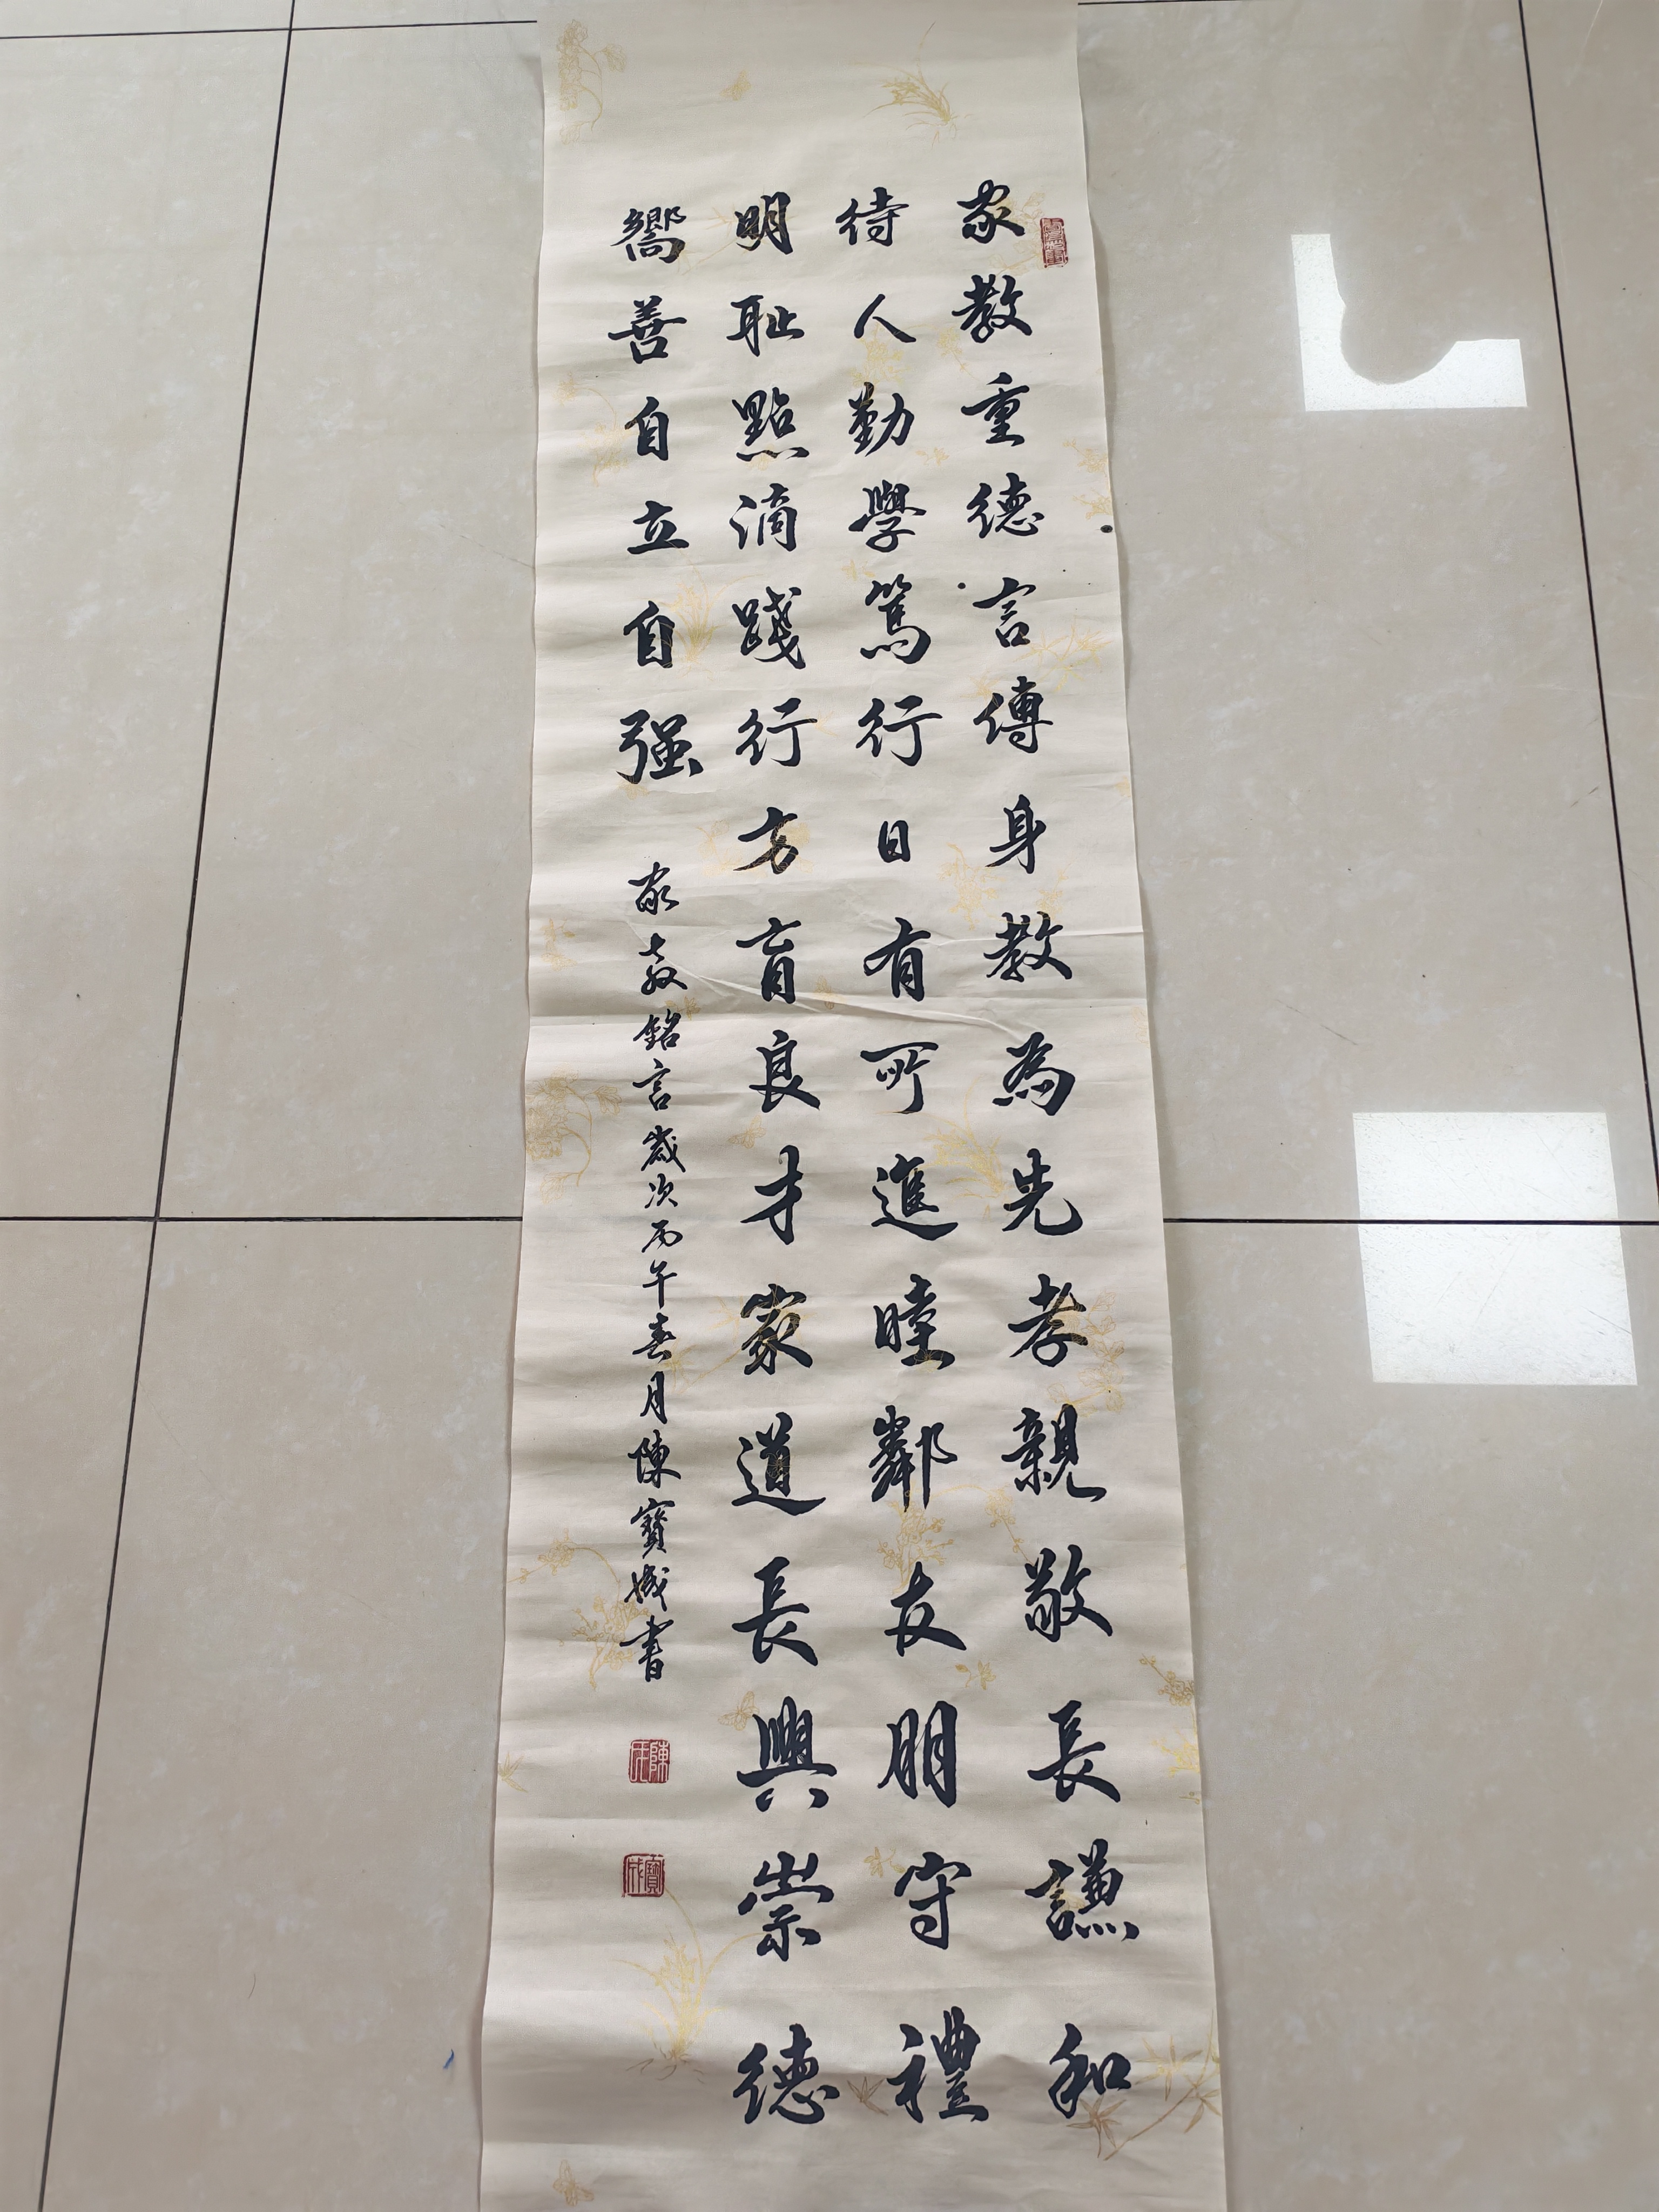 家教重德言傳身教為先孝親敬長謙和
待人勤學篤行日有所進睦鄰友朋守禮
明耻點滴踐行方育良才家道長興崇德
嚮善自立自强
家教銘言歲次丙午春月陳寶成書
陳
寶